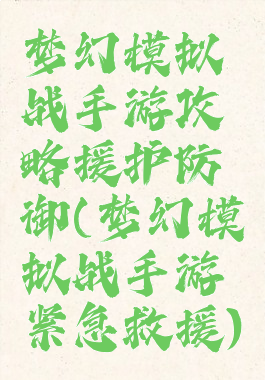 梦幻模拟
战手游攻
略援护防
御(梦幻模
拟战手游
紧急救援)